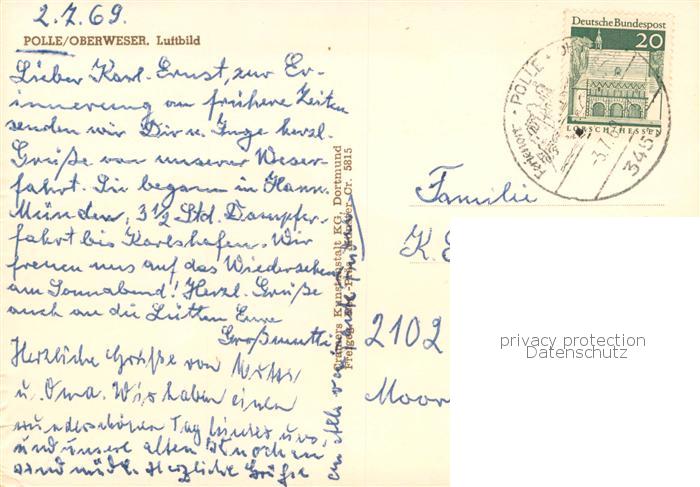 2.7.69.
POLLE/OBERWESER. Luftbild
Lieber Karl-Ernst, zur Er-
innerung an frühere Zeiten
senden wir Dir u. Inge herzl.
Grüße von unserer Weser-
fahrt. Sie begann in Hann.
Münden, 3½ Std. Dampfer-
fahrt bis Karlshafen. Wir
freuen uns auf das Wiedersehen
am Sonnabend! Herzl. Grüße
auch an die Lütten Eure
Großmutti
Herzliche Grüße von
u. Oma. Wir haben einen
wunderschönen Tag hinter uns,
und unsere alten Knochen
sind müde. Herzliche Grüße
an Alle von
Cramers Kunstanstalt KG. Dortmund
5815
Deutsche Bundespost
20
LORSCH/HESSEN
POLLE
Ferienort
345
Familie
K. E
2102
Moor
privacy protection
Datenschutz